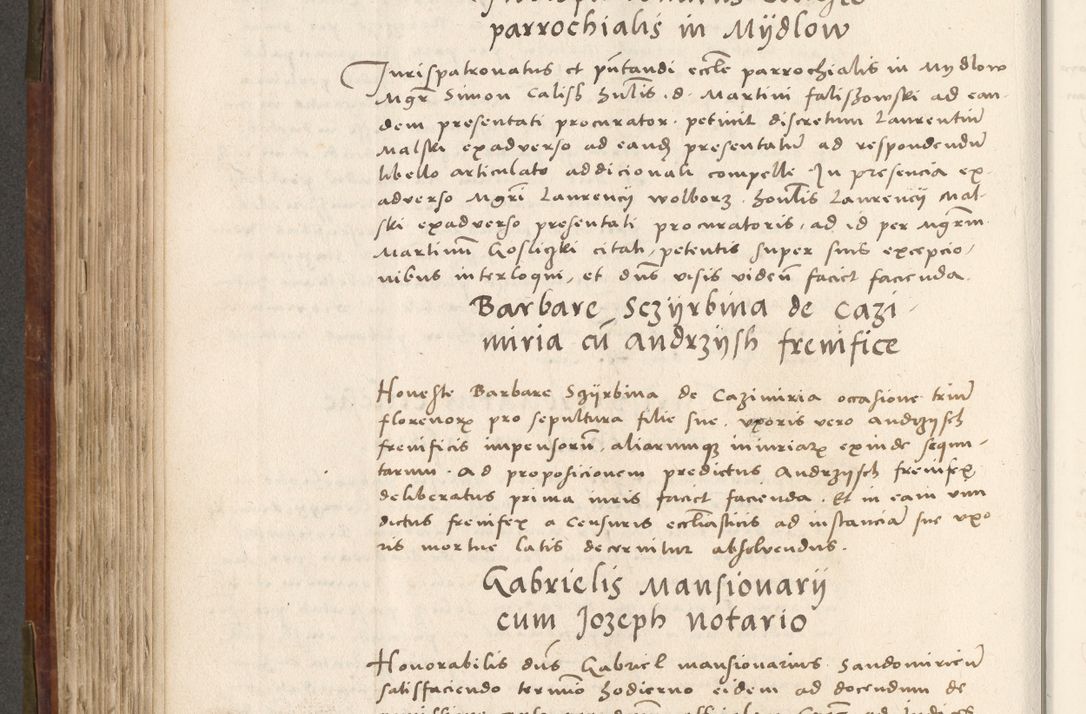 parrochialis in Mÿdlow
Jurispatronatus et pñtandi eccle parrochialis in Mydlow
Mgr Simon Calish hulis d. Martini faliszowski ad ean-
dem presentati procurator. petiuit discretum Laurentiū
Malski exaduerso ad eandꝫ presentatū ad respondendū
libello articulato addicionali compelle In presencia ex-
aduerso Mgri Laurencij wolborz. honlis Laurencij Mal-
ski exaduerso presentati procuratoris, ad id per Mgrm
Martinū Gosliczki citati, petentis super suis excepcio-
nibus interloqui, et dns visis viden faciet facienda.
Barbare Sczÿrbina de Cazi-
miria cū Andrzÿsh frenifice
Honeste Barbare Sczÿrbina de Cazimiria occasione triū
florenorꝝ pro sepultura filie sue, vxoris vero Andrzÿsch
frenificis impensorū, aliarumqꝫ iniuriarꝝ exinde sequu-
tarum. Ad proposicionem predictus Andrzÿsch frenifex
deliberatus prima iuris faciet facienda. Et in eam
dictus frenifex a censuris eccliasticis ad instanciā sue vxo
ris mortue latis decernitur absoluendus.
Gabrielis Mansionarij
cum Jozeph notario
Honorabilis dns Gabriel mansionarius Sandomirien
satisfaciendo termīo hodierno eidem ad docendum de